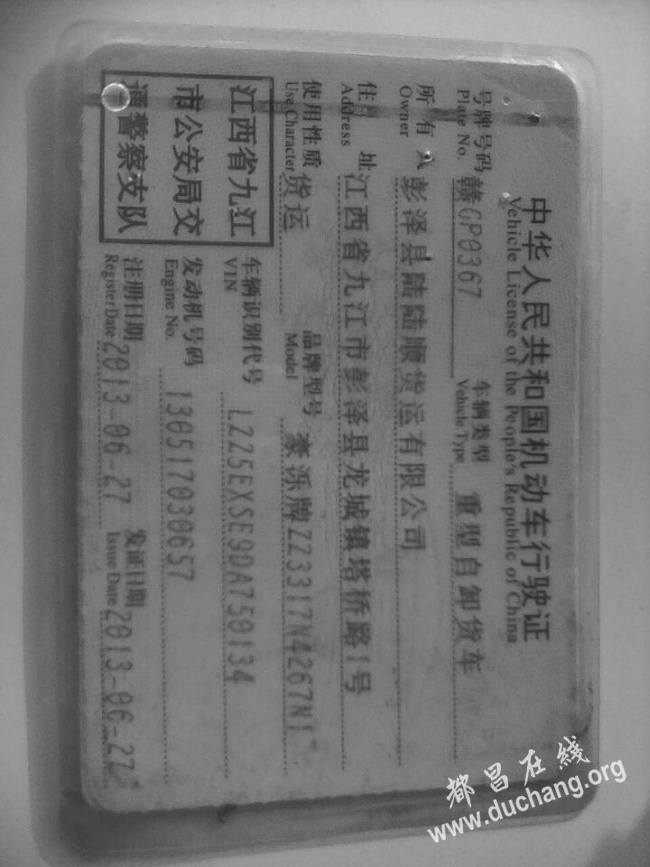 中华人民共和国机动车行驶证
Vehicle License of the People's Republic of China
号牌号码 赣GP0367 车辆类型 重型自卸货车
Plate No. Vehicle Type
所有人 彭泽县陆陆顺货运有限公司
Owner
住址 江西省九江市彭泽县龙城镇塔桥路1号
Address
使用性质 货运 品牌型号 豪泺牌ZZ3317N4267N1
Use Character Model
江西省九江
市公安局交
通警察支队
车辆识别代号 LZZ5EXSE9DA750134
VIN
发动机号码 130517030657
Engine No.
注册日期 2013-06-27 发证日期 2013-06-27
Register Date Issue Date
都昌在線
www.duchang.org